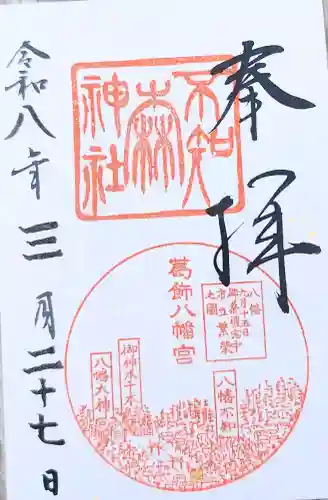 奉拝
不知森神社
葛飾八幡宮
八幡不知
御神木千本
八幡大神
令和八年三月二十七日